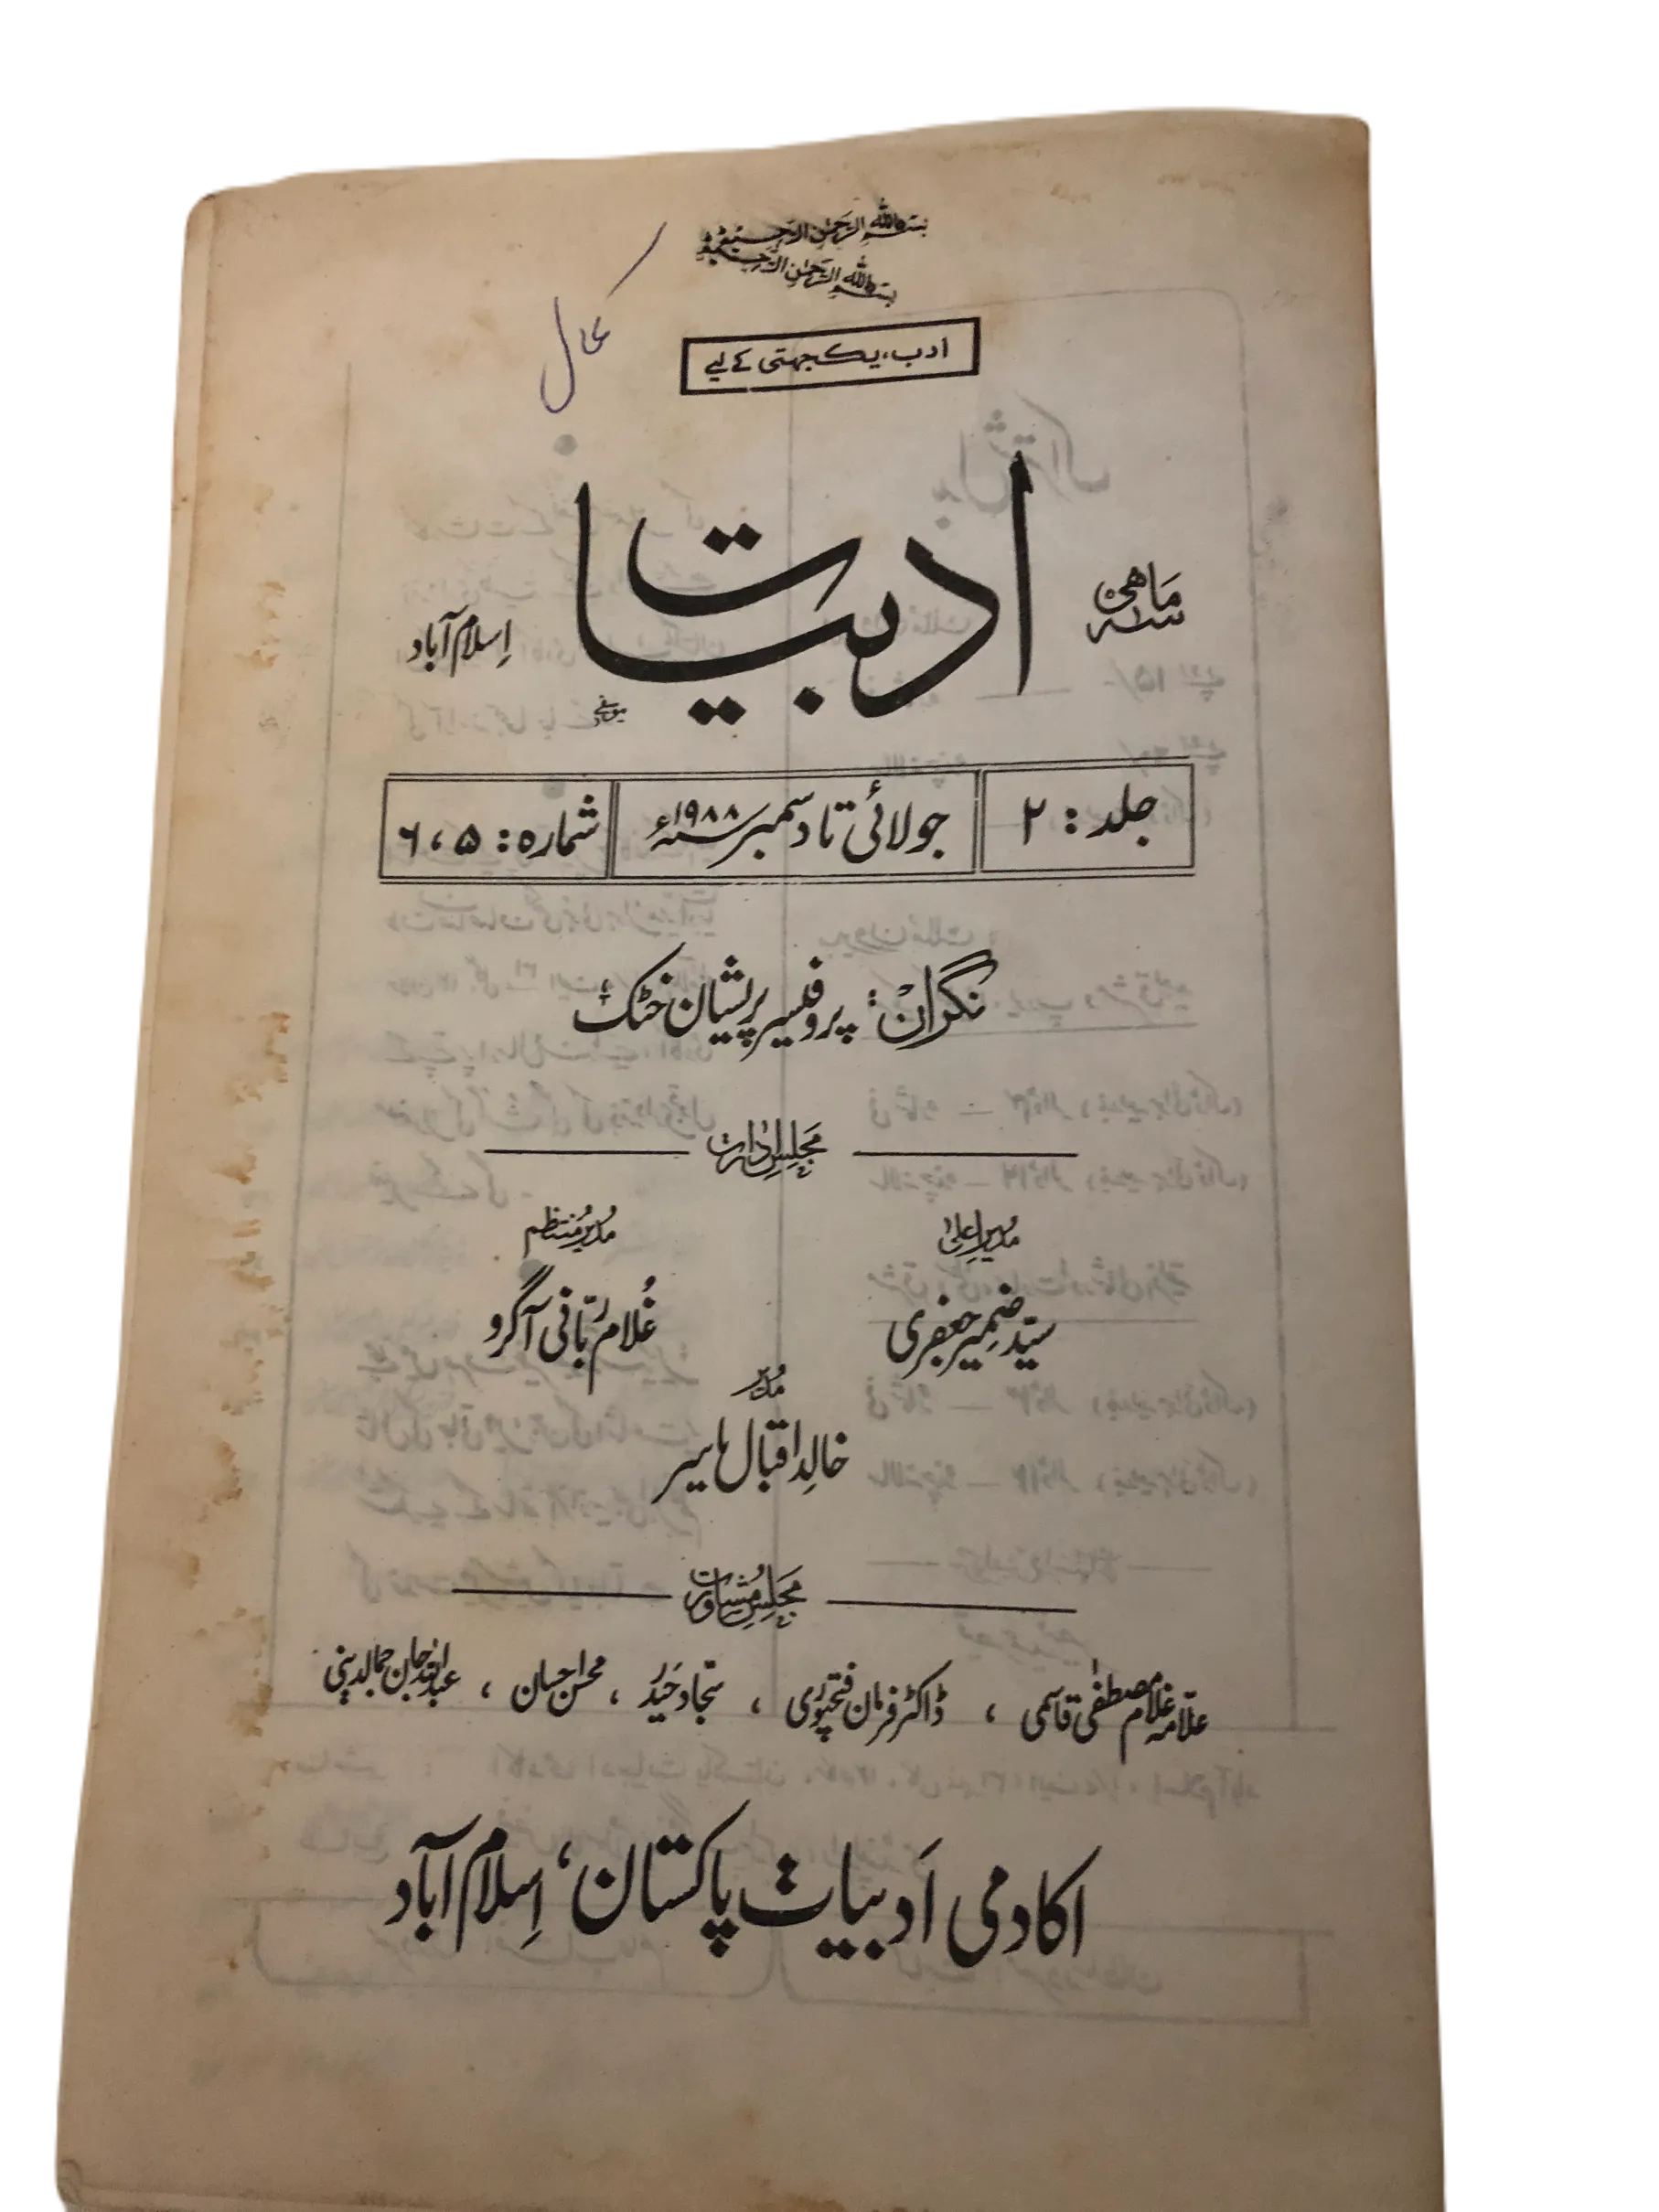 بسم الله الرحمن الرحيم
بسم الله الرحمن الرحيم
ادب، یک جہتی کے لیے
سہ ماهی
ادبیات
اِسلام آباد
جلد: ۲
جولائی تا دسمبر ۱۹۸۸ء
شمارہ: ۵، ۶
نگران: پروفیسر پریشان خٹک
مجلسِ ادارت
مدیرِ اعلیٰ
مدیرِ منتظم
سیّد ضمیر جعفری
غُلام ربّانی آگرو
مُدیر
خالد اقبال یاسر
مجلسِ مُشاورت
علّامہ غلام مصطفٰی قاسمی ، ڈاکٹر فرمان فتحپوری ، سجّاد حیدر ، محسن احسان ، عبداللہ جان جمالدینی
اکادمی اَدبیات پاکستان، اِسلام آباد